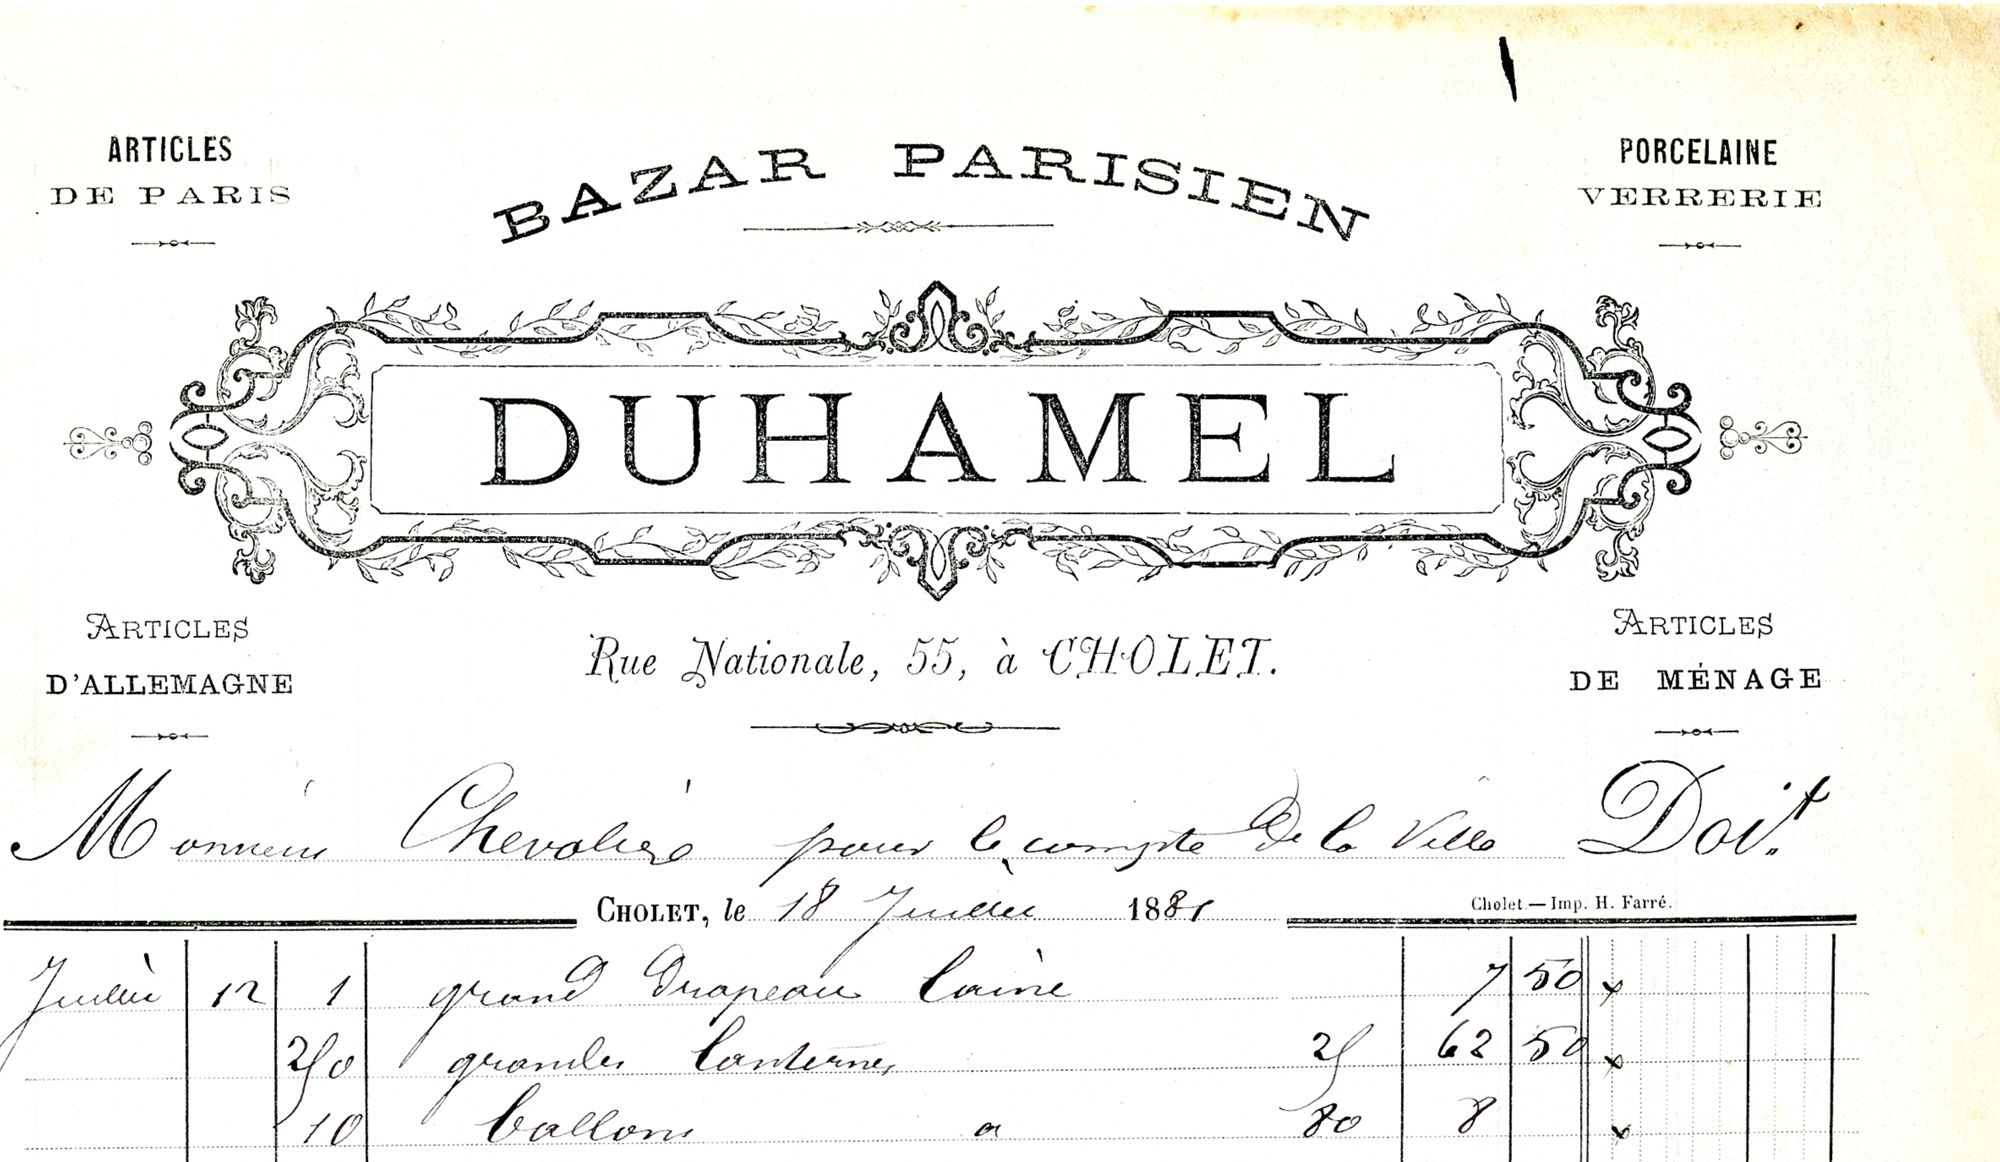 ARTICLES
DE PARIS
BAZAR PARISIEN
PORCELAINE
VERRERIE
DUHAMEL
ARTICLES
D'ALLEMAGNE
Rue Nationale, 55, à CHOLET.
ARTICLES
DE MÉNAGE
Monsieur Chevalier pour le compte de la Ville Doit
CHOLET, le 18 Juillet 1881
Cholet. — Imp. H. Farré.
Juillet 12 1 grand Drapeau laine 7 50 x
250 grandes lanternes 25 62 50 x
10 ballons a 80 8 x